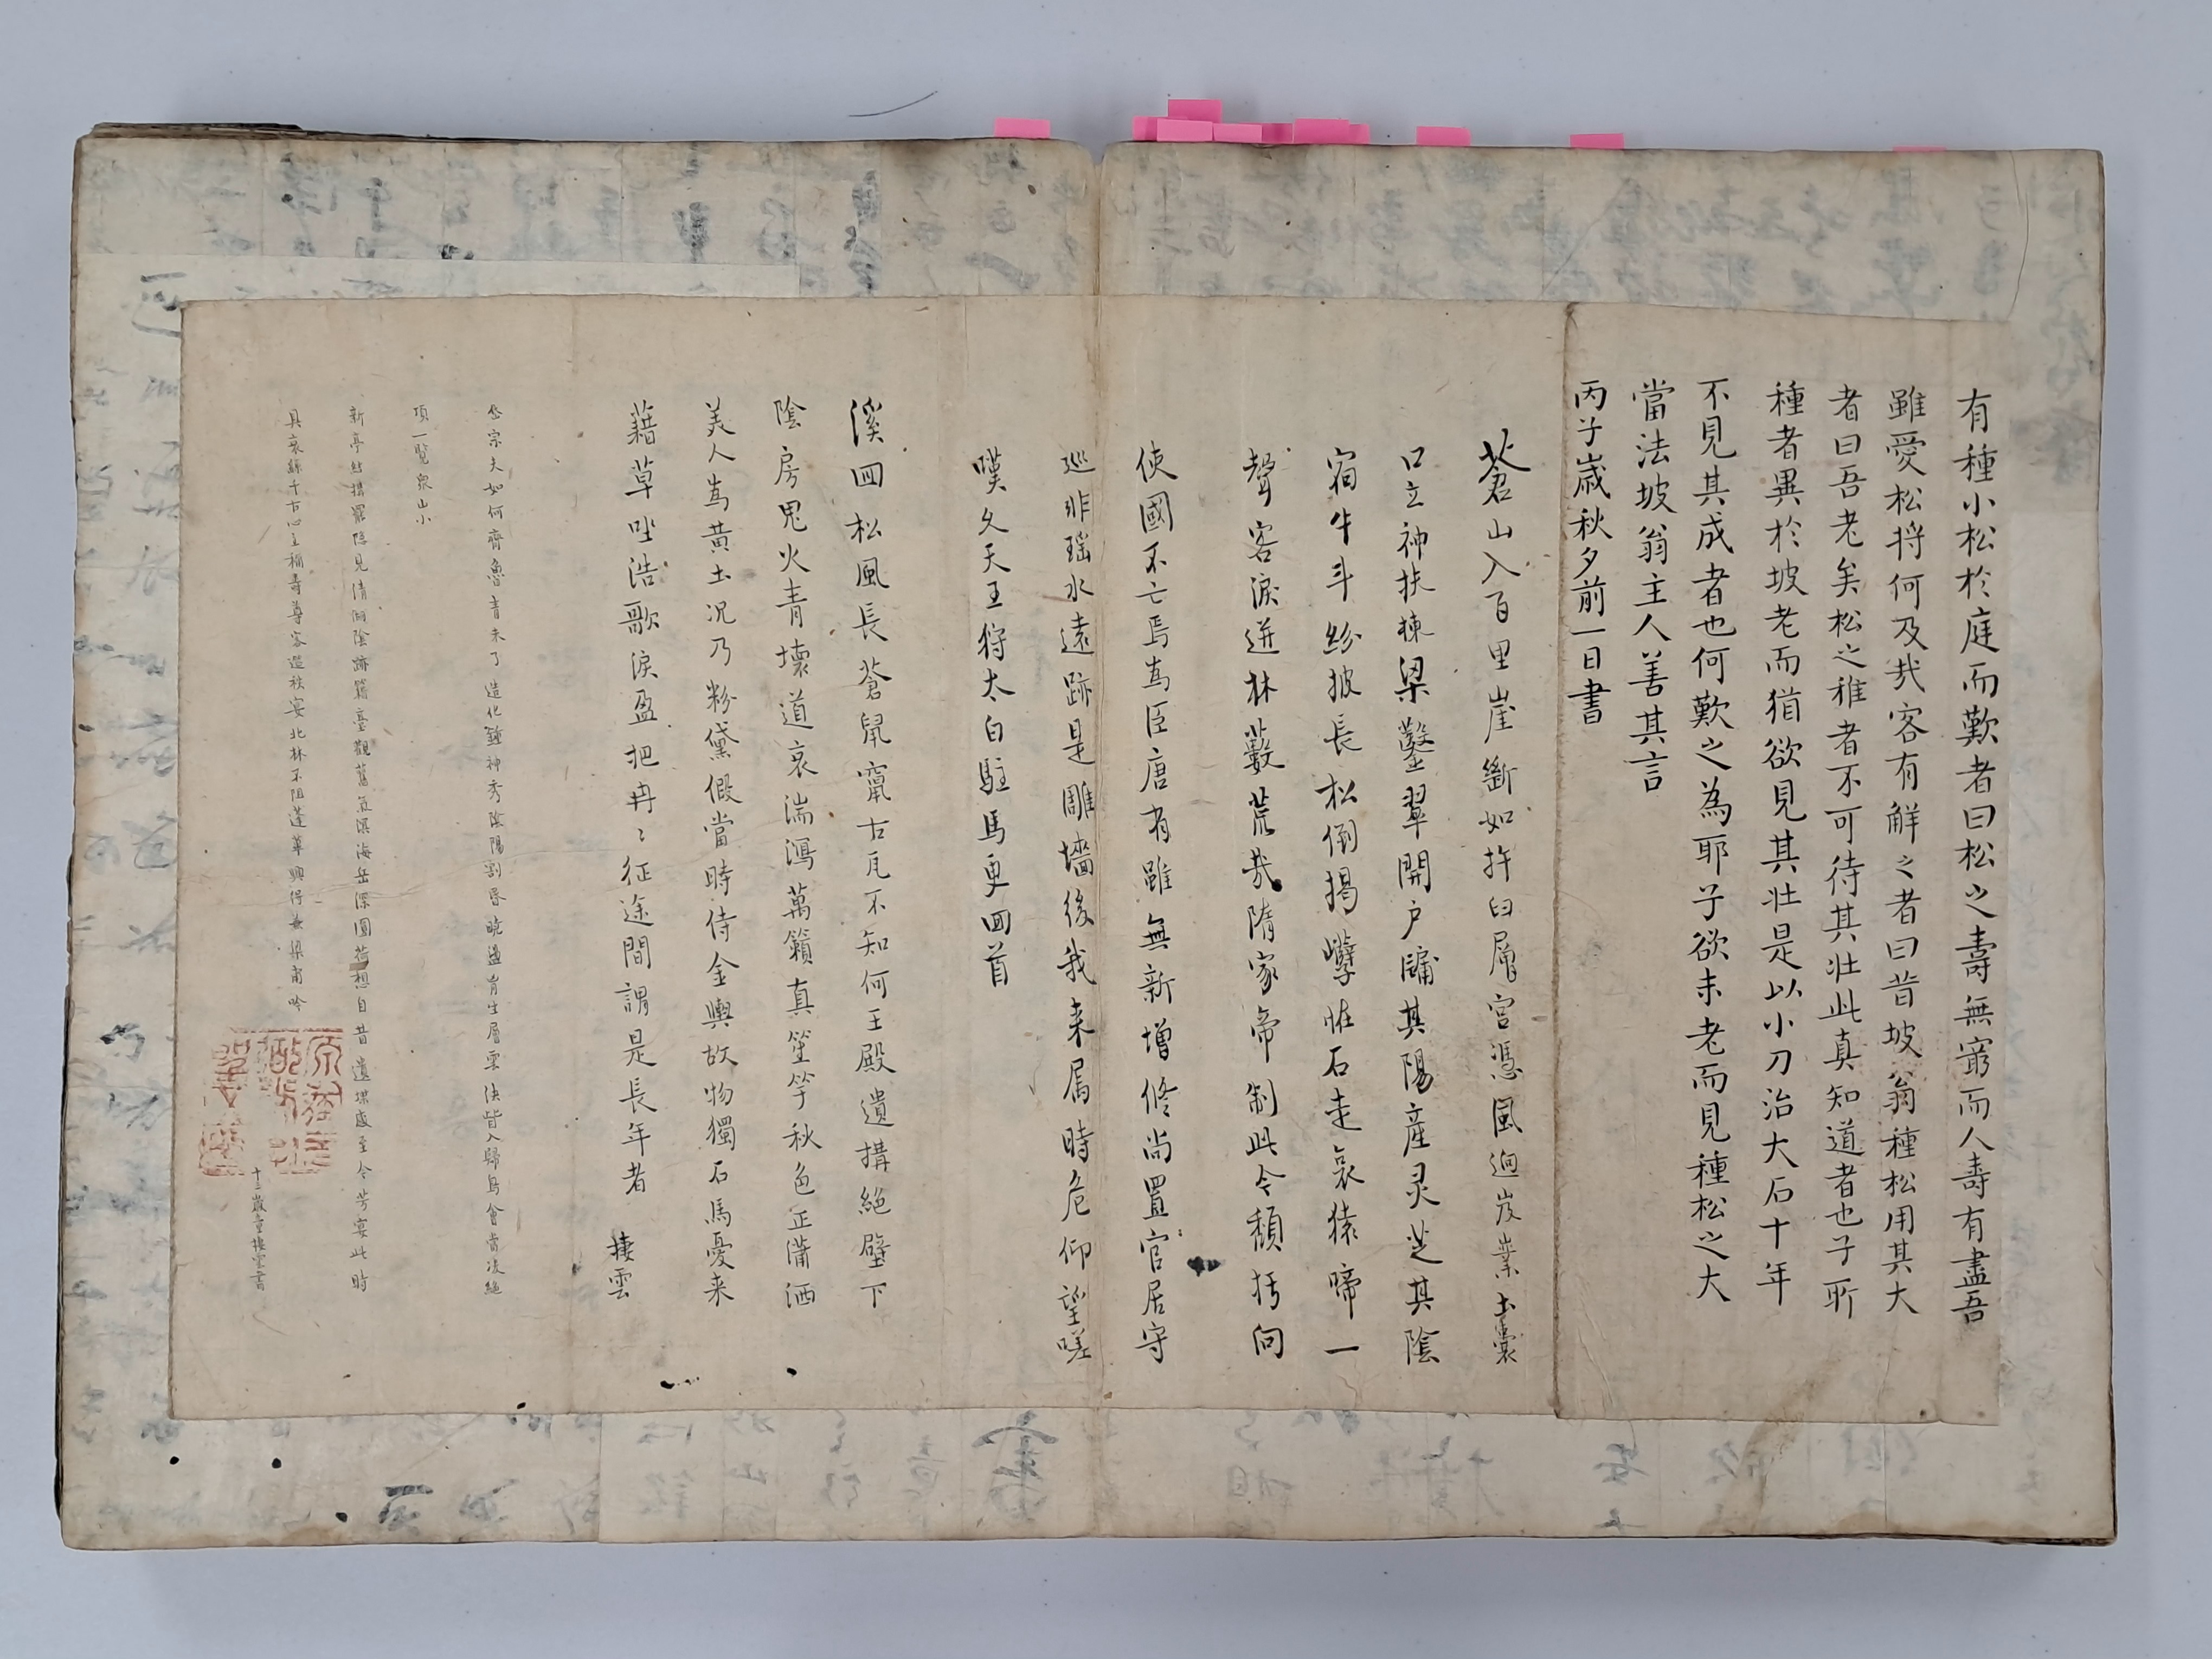 有種小松於庭而歎者曰松之壽無窮而人壽有盡吾
雖愛松將何及哉客有解之者曰昔坡翁種松用其大
者曰吾老矣松之稚者不可待其壯此真知道者也子所
種者異於坡老而猶欲見其壯是以小刀治大石十年
不見其成者也何歎之為耶子欲未老而見種松之大
當法坡翁主人善其言
丙子歲秋夕前一日書
蒼山入百里崖斷如杵臼層宮憑風迥岌嶪土囊
口立神扶棟梁鑿翠開戶牖其陽產灵芝其陰
宿牛斗紛披長松倒揭㠥怪石走哀猿啼一
聲客淚迸林藪荒哉隋家帝制此今頹朽向
使國不亡焉為臣唐有雖無新增修尚置官居守
巡非瑤水遠跡是雕墻後我来屬時危仰望嗟
嘆久天王狩太白駐馬更回首
溪回松風長蒼鼠竄古瓦不知何王殿遺搆絕壁下
陰房鬼火青壞道哀湍瀉萬籟真笙竽秋色正蕭洒
美人為黃土况乃粉黛假當時侍金輿故物獨石馬憂来
藉草坐浩歌淚盈把冉〻征途間誰是長年者 棲雲
岱宗夫如何齊魯青未了造化鍾神秀陰陽割昏曉盪胷生層雲決眥入歸鳥會當凌絕
頂一覽衆山小
新亭結搆罷隱見清湖陰跡籍臺觀舊氣溟海岳深圓荷想自昔遺堞感至今芳宴此時
具哀絲千古心主稱壽尊客筵秩宴北林不阻蓬蓽興得兼梁甫吟
十二歲童棲雲書